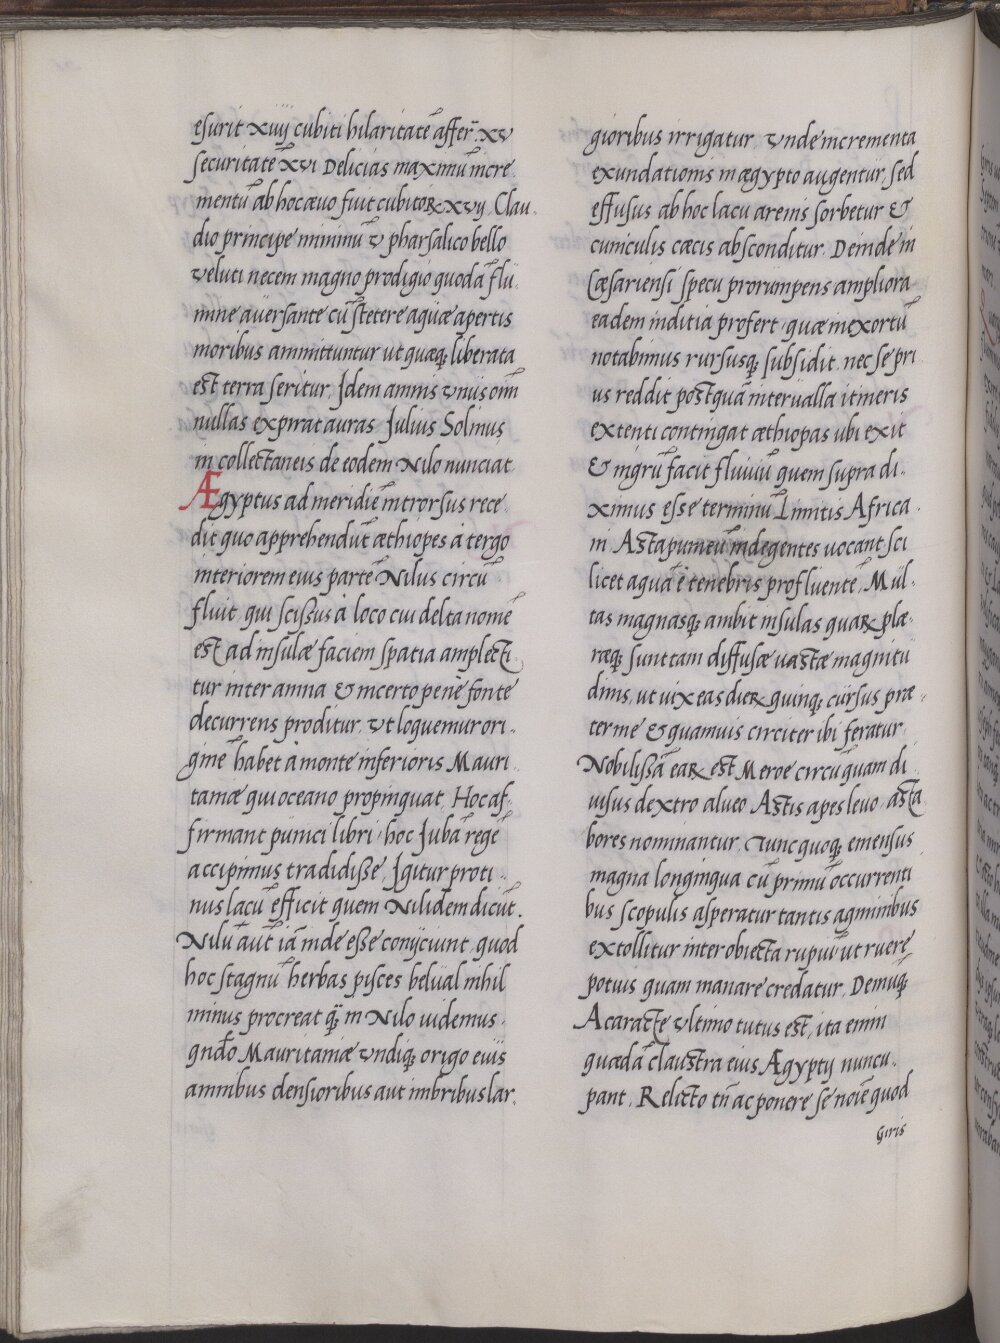 esurit xiiij cubiti hilaritatē affer̄. xv
securitatē xvi Delicias maximū incre
mentū ab hoc ævo fuit cubitoꝝ xvij. Clau
dio principe minimū v pharsalico bello
veluti necem magno prodigio quodā flu
mine aversante cū stetere aquæ apertis
moribus ammittuntur ut quæqꝫ liberata
est terra seritur. Idem amnis vnus om̄i
nullas expirat auras Julius Solinus
in collectaneis de eodem Nilo nunciat
Ægyptus ad meridiē introrsus rece
dit quo apprehendūt æthiopes à tergo
interiorem eius partē Nilus circū
fluit. qui scissus à loco cui delta nomē
est ad insulæ faciem spatia amplecti
tur inter amna & incerto penè fonte
decurrens proditur, vt loquemur ori.
ginē habet à monte inferioris Mauri
taniæ qui oceano propinquat. Hoc af
firmant punici libri hoc Jubā regē
accipimus tradidisse, Igitur proti
nus lacū efficit quem Nilidem dicūt.
Nilū aūt iā inde esse conijciunt. quod
hoc stagnū herbas pisces beluāl nihil
minus procreat qꝫ̄ in Nilo videmus.
qn̄do Mauritaniæ vndiqꝫ origo eius
amnibus densioribus aut imbribus lar
gioribus irrigatur, vnde incrementa
exundationis in ægypto augentur, sed
effusus ab hoc lacu arenis sorbetur &
cuniculis cæcis absconditur. Deinde in
Cæsariensi specu prorumpens ampliora
eadem inditia profert, quæ in exortū
notabimus rursusqꝫ subsidit. nec se pri
us reddit postquā intervalla itineris
extenti contingat æthiopas ubi exit
& nigrū facit fluviū quem supra di.
ximus esse terminū Limitis Africa.
ni Astapumeū indegentes vocant sci
licet aquā è tenebris profluentē, Mul-
tas magnasqꝫ ambit insulas quaꝝ plæ-
ræqꝫ sunt tam diffusæ vastæ magnitu
dinis, ut vix eas dieꝝ quinqꝫ cursus præ-
terme & quamuis circiter ibi feratur
Nobilissā eaꝝ est Meroe circū quam di
uisus dextro alueo Astis apes leuo, asta
bores nominantur. Tunc quoqꝫ emensus
magna longinqua cū primū occurrenti
bus scopulis asperatur tantis agminibus
extollitur inter obiecta rupiū ut ruere
potuis quam manare credatur. Demūqꝫ
A caracte vltimo tutus est, ita enim
quædā claustra eius Ægyptij nuncu.
pant. Relicto tn̄ ac ponere se noīe quod
Giris